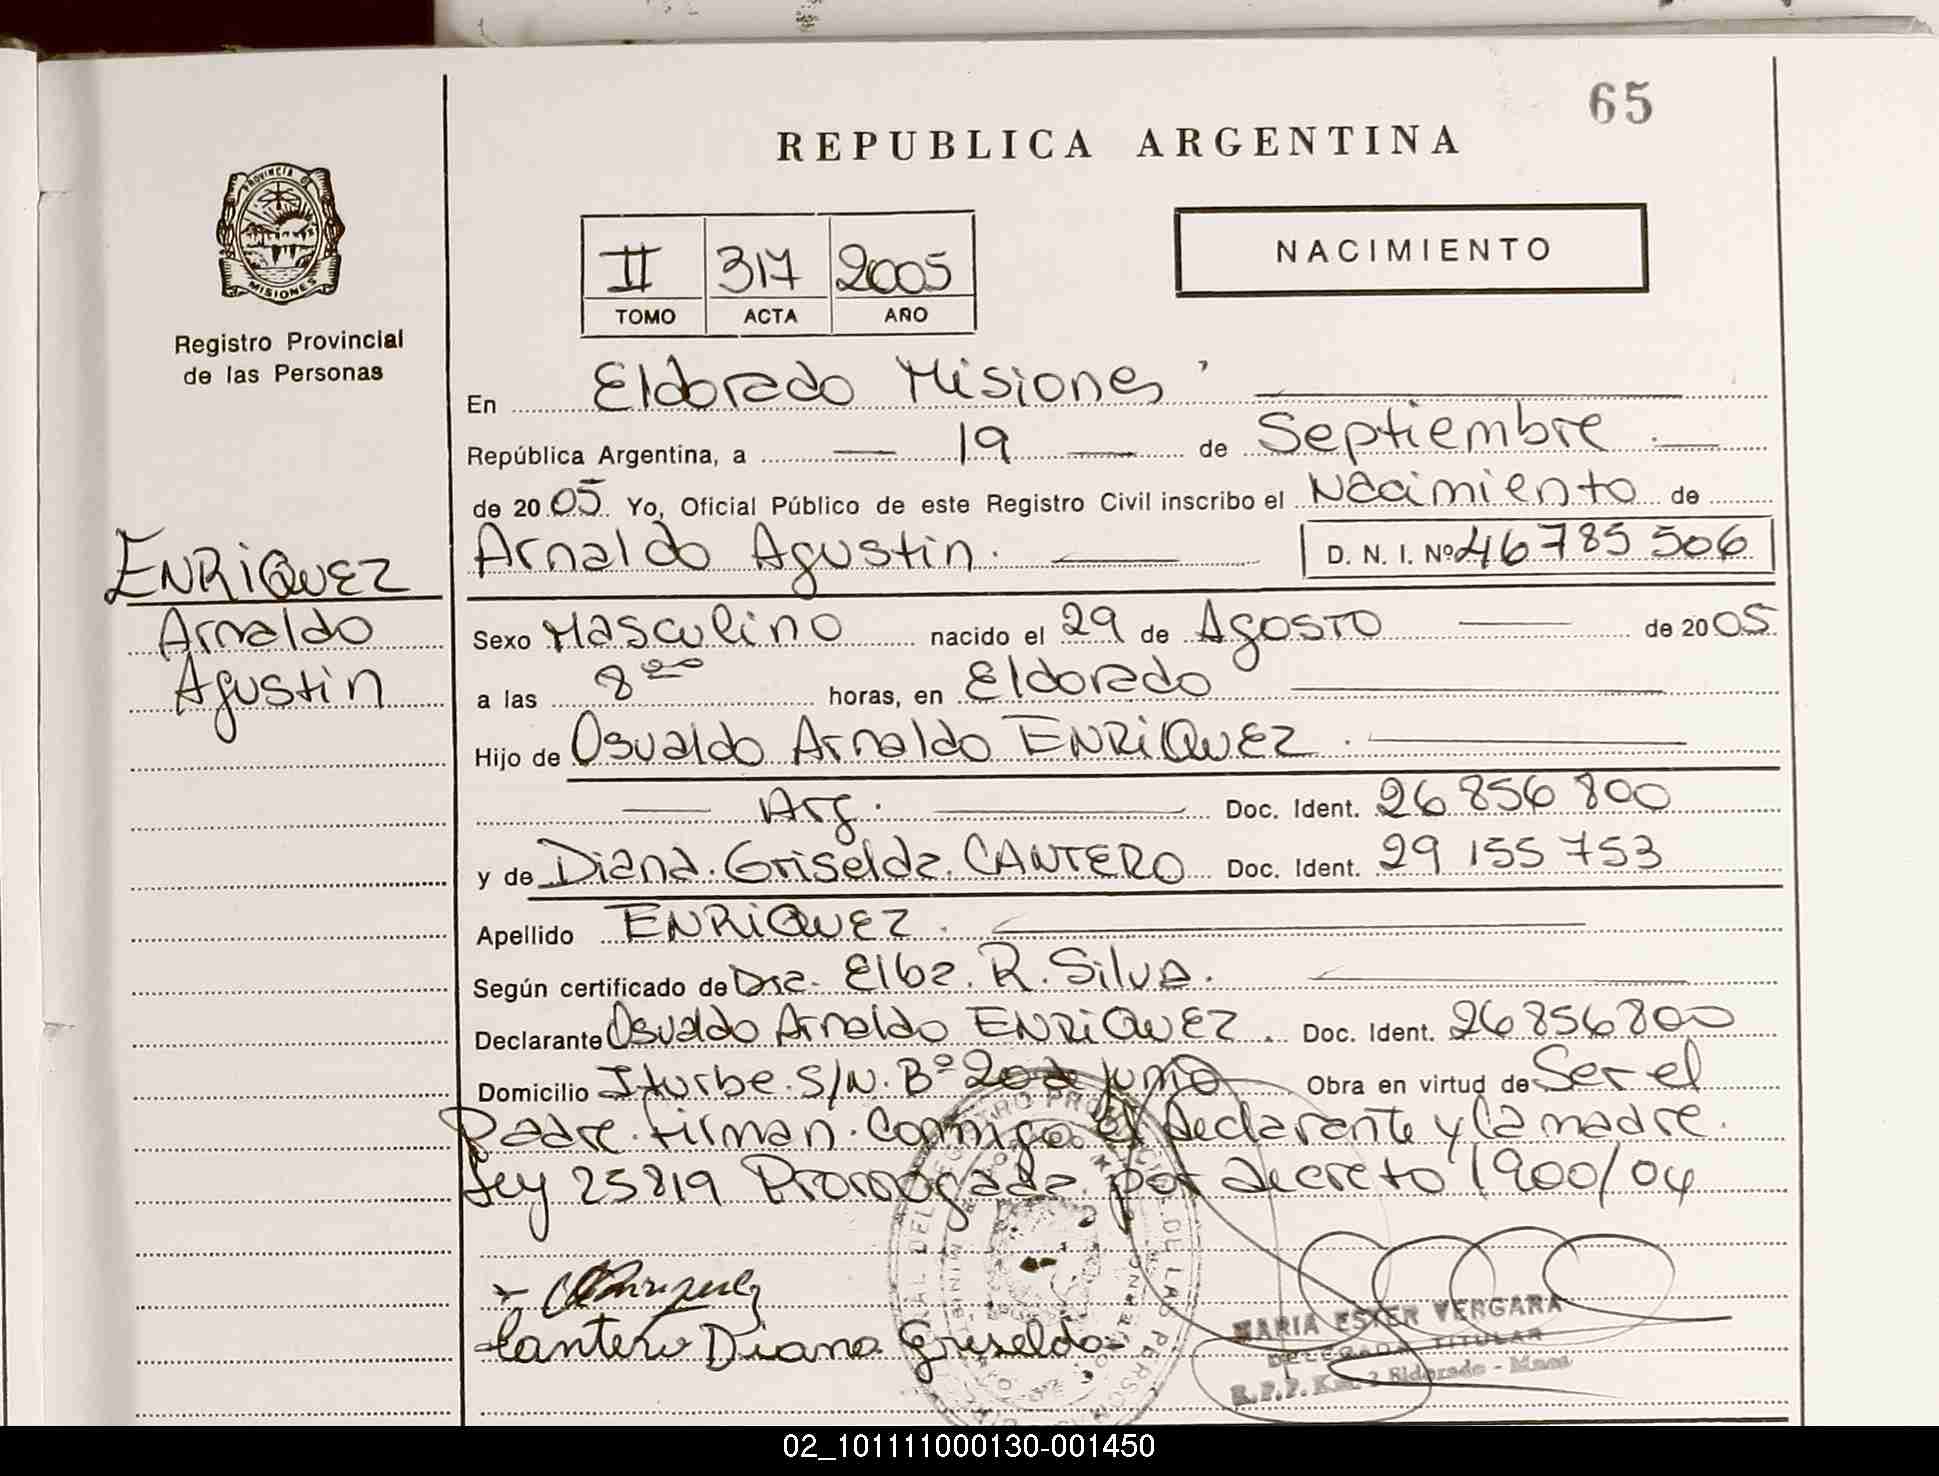 65
REPUBLICA ARGENTINA
PROVINCIA DE
MISIONES
Registro Provincial
de las Personas
II 317 2005
TOMO ACTA AÑO
NACIMIENTO
En Eldorado Misiones
República Argentina, a — 19 — de Septiembre
de 2005 Yo, Oficial Público de este Registro Civil inscribo el Nacimiento de
Arnaldo Agustin. D. N. I. Nº 46785506
ENRiQUEZ
Arnaldo
Agustin
Sexo Masculino nacido el 29 de Agosto de 2005
a las 8 horas, en Eldorado
Hijo de Osvaldo Arnaldo ENRiQUEZ.
Arg. Doc. Ident. 26 856 800
y de Diana. Griselda. CANTERO Doc. Ident. 29 155 753
Apellido ENRiQUEZ.
Según certificado de Dra. Elba. R. Silva.
Declarante Osvaldo Arnaldo ENRiQUEZ. Doc. Ident. 26856800
Domicilio Iturbe. S/N. Bº 20 de junio Obra en virtud de Ser el
Padre. firman. Conmigo. el declarante y la madre.
Ley 25819 Prorrogada por decreto 1900/04
Cantero Diana Griselda
MARIA ESTER VERGARA
DELEGADA TITULAR
R.P.P. Km. 2 Eldorado - Mnes
02_101111000130-001450